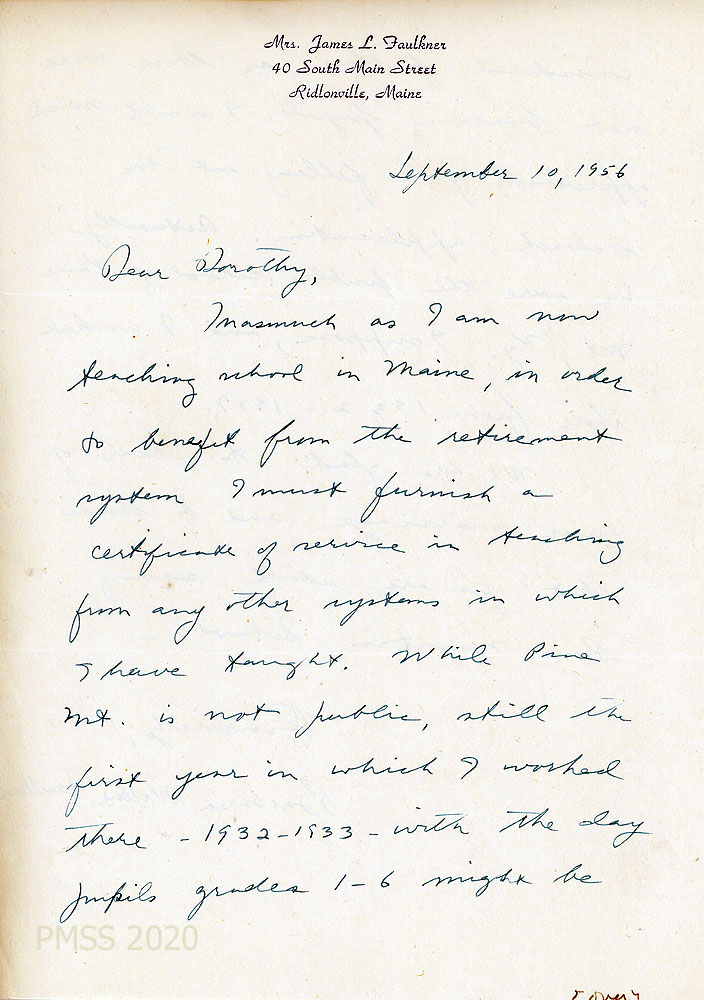 Mrs. James L. Faulkner
40 South Main Street
Ridlonville, Maine
September 10, 1956
Dear Dorothy,
Inasmuch as I am now
teaching school in Maine, in order
to benefit from the retirement
system I must furnish a
certificate of service in teaching
from any other systems in which
I have taught. While Pine
Mt. is not public, still the
first year in which I worked
there - 1932-1933 - with the day
pupils grades 1-6 might be
PMSS 2020